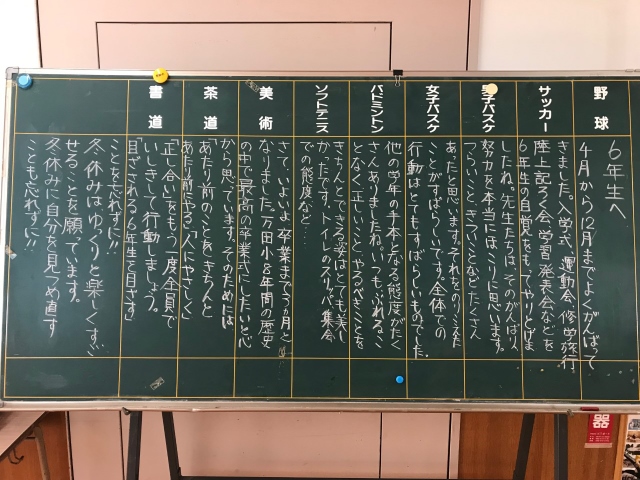 野球
サッカー
男子バスケ
女子バスケ
バドミントン
ソフトテニス
美術
茶道
書道
6年生へ
4月から12月までよくがんばって
きました。入学式、運動会、修学旅行
陸上記ろく会、学習発表会などを
6年生の自覚をもってやりとげま
したね。先生たちは、そのがんばり、
努力を本当にほこりに思います。
つらいこと、きついことなどたくさん
あったと思います。それをのりこえた
ことがすばらしいです。全体での
行動はとてもすばらしいものでした。
他の学年の手本となる態度がたく
さんありましたね。いつもぶれるこ
となく正しいこと、やるべきことを
きちんとできる姿はとても美し
かったです。トイレのスリッパ、集会
での態度など…
さて、いよいよ卒業まで3ヵ月と
なりました。万田小8年間の歴史
の中で最高の卒業式にしたいと心
から思っています。そのためには
「あたり前のことをきちんと
あたり前にやる」「人にやさしく」
「正し合い」をもう一度全員で
いしきして行動しましょう。
「目ざされる6年生を目ざす」
ことを忘れずに!!
冬休みはゆっくりと楽しくすご
せることを願っています。
冬休みに自分を見つめ直す
ことも忘れずに!!
器